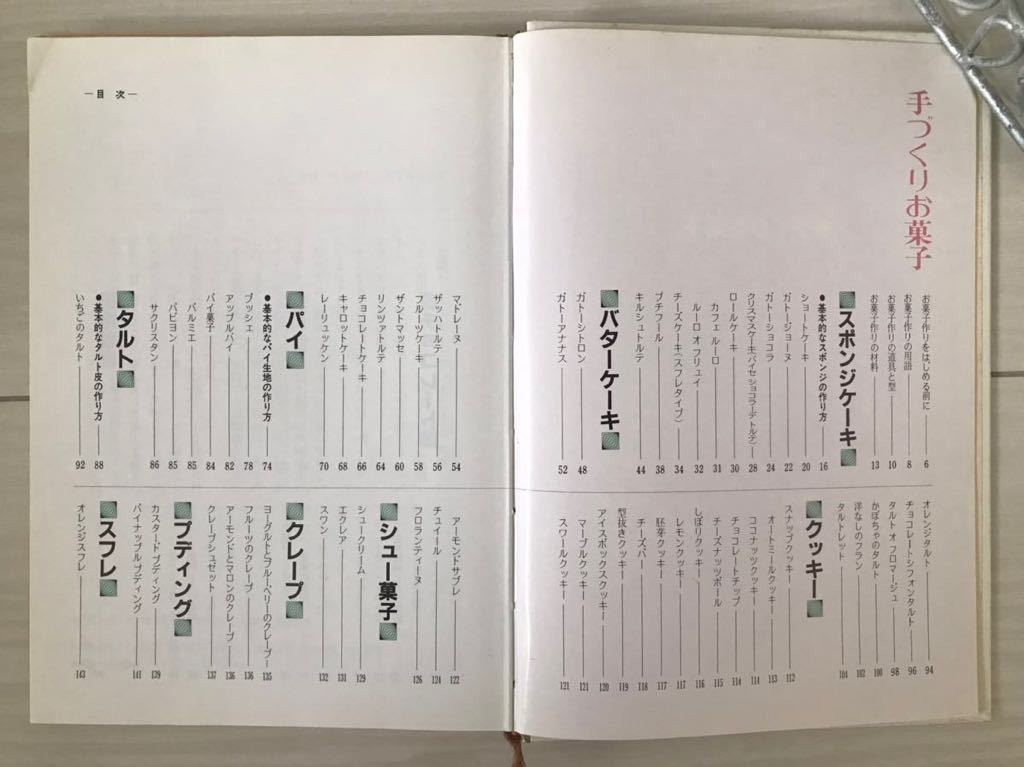 手づくりお菓子
お菓子作りをはじめる前に 6
お菓子作りの用語 8
お菓子作りの道具と型 10
お菓子作りの材料 13
スポンジケーキ
●基本的なスポンジの作り方 16
ショートケーキ 20
ガトージョーヌ 22
ガトーショコラ 24
クリスマスケーキ(バイセ ショコラーデ トルテ) 28
ロールケーキ 30
カフェ ルーロ 31
ルーロ オ フリュイ 32
チーズケーキ(スフレタイプ) 34
プチフール 38
キルシュトルテ 44
バターケーキ
ガトーシトロン 48
ガトーアナナス 52
オレンジタルト 94
チョコレートシフォンタルト 96
タルト オ フロマージュ 98
かぼちゃのタルト 100
洋なしのフラン 102
タルトレット 104
クッキー
スナップクッキー 112
オートミールクッキー 113
ココナッツクッキー 114
チョコレートチップ 114
チーズナッツボール 115
しぼりクッキー 116
レモンクッキー 117
胚芽クッキー 117
チーズバー 118
型抜きクッキー 119
アイスボックスクッキー 120
マーブルクッキー 121
スワールクッキー 121
―目 次―
マドレーヌ 54
ザッハトルテ 56
フルーツケーキ 58
ザントマッセ 60
リンツァトルテ 64
チョコレートケーキ 66
キャロットケーキ 68
レーリュッケン 70
パイ
●基本的なパイ生地の作り方 74
ブッシェ 78
アップルパイ 82
パイ菓子 84
パルミエ 85
パピヨン 85
サクリスタン 86
タルト
●基本的なタルト皮の作り方 88
いちごのタルト 92
アーモンドサブレ 122
チュイール 124
フロランティーヌ 126
シュー菓子
シュークリーム 129
エクレア 131
スワン 132
クレープ
ヨーグルトとブルーベリーのクレープ 135
フルーツのクレープ 136
アーモンドとマロンのクレープ 136
クレープシュゼット 137
プディング
カスタード プディング 139
パイナップル プディング 141
スフレ
オレンジスフレ 143